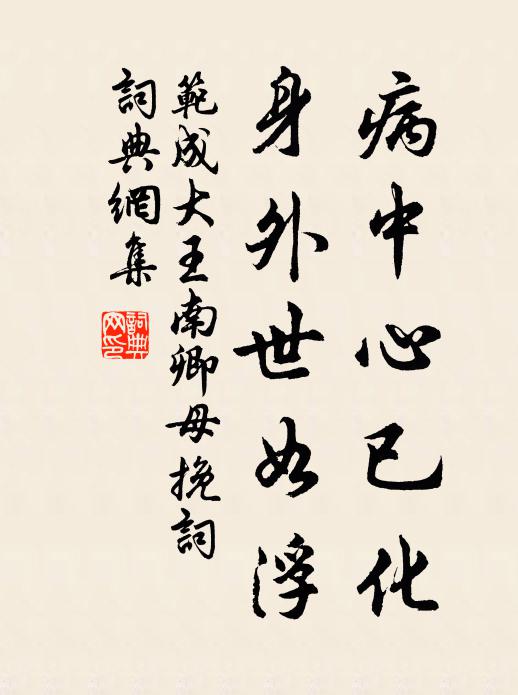 病中心已化
身外世如浮
範成大王南卿母挽詞
詞典網集
詞典网印